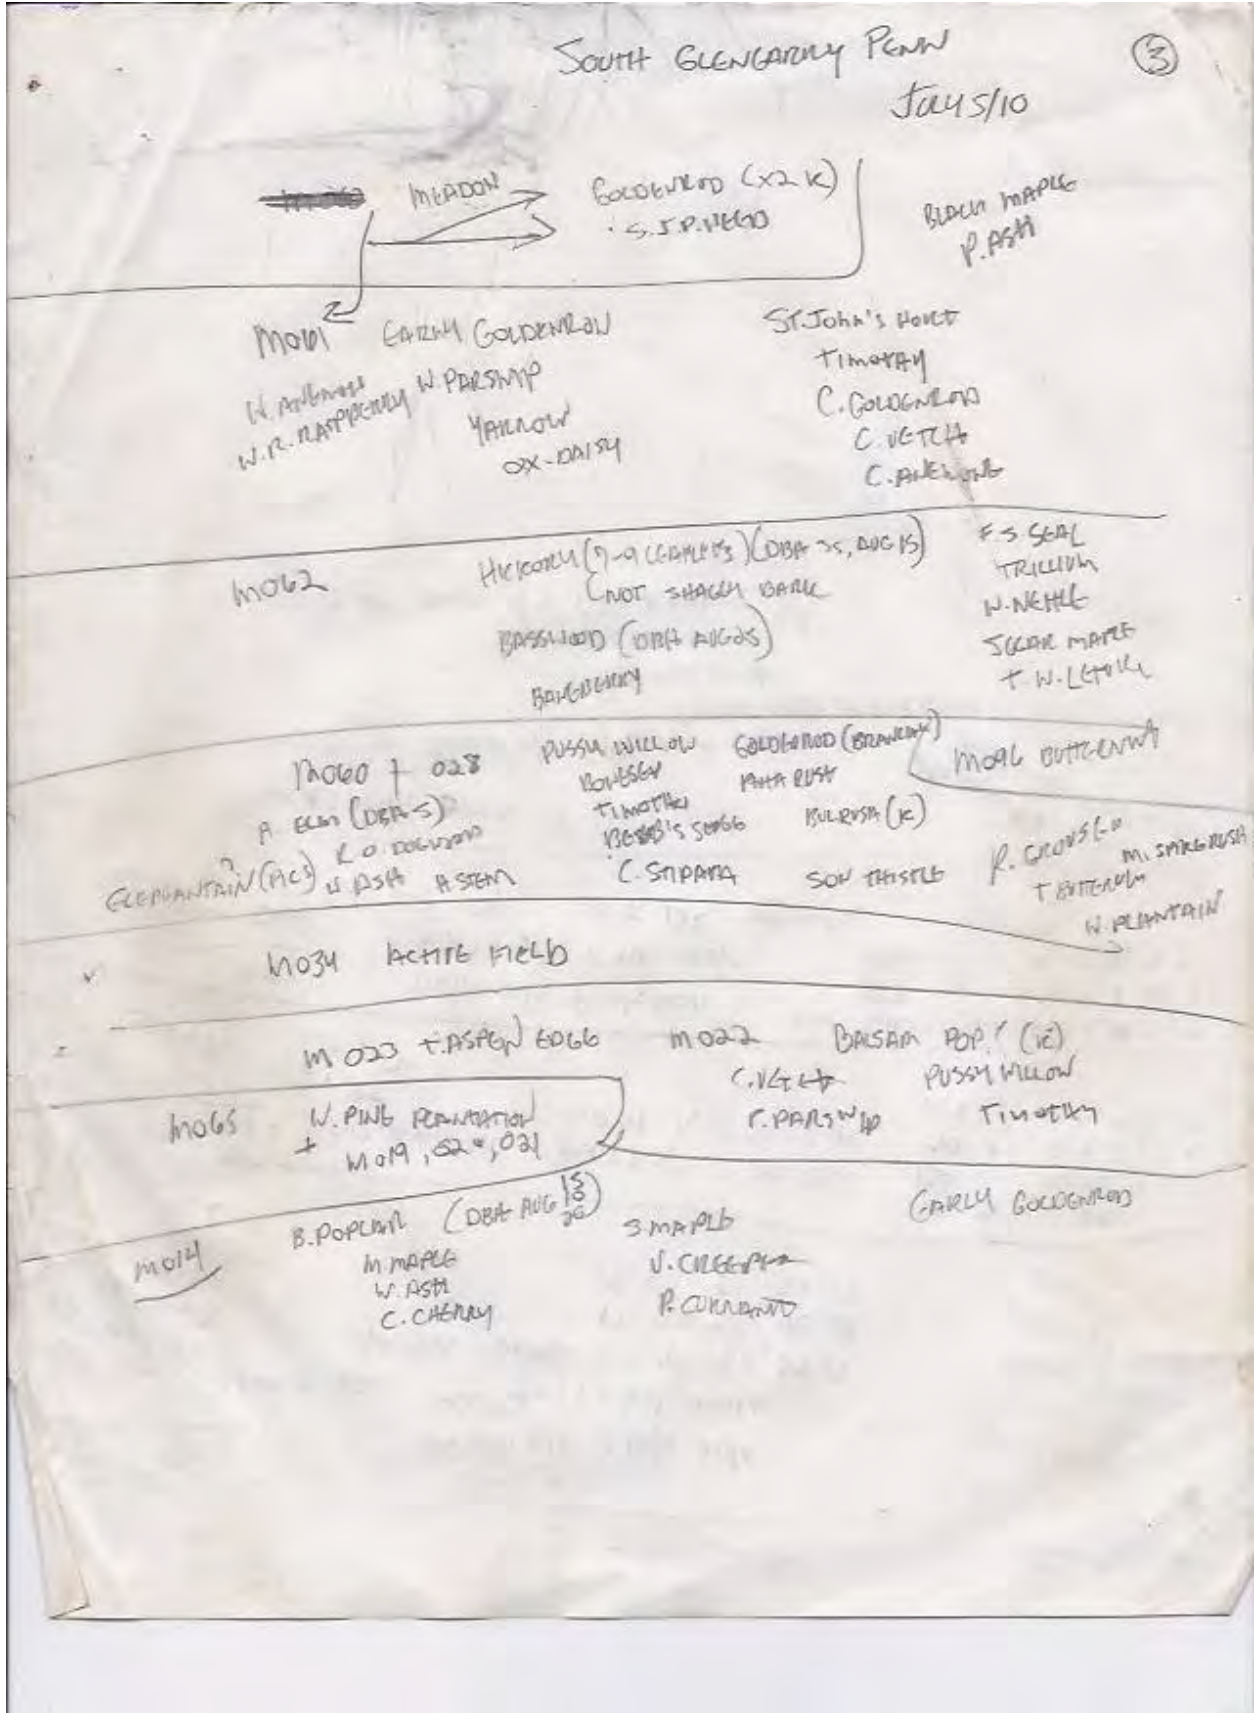 SOUTH GLENGARRY PENN
3
JULY 5/10
MEADOW
GOLDENROD (X2 K)
S.J.P.WEED
BLACK MAPLE
P. ASH
M061 EARLY GOLDENROD
W. ANEMONE
W.R. RASPBERRY W. PARSNIP
YARROW
OX-DAISY
ST. JOHN'S WORT
TIMOTHY
C. GOLDENROD
C. VETCH
C. ANEMONE
M062
HICKORY (7-9 LEAFLETS) (DBH 35, AUG 15)
(NOT SHAGGY BARK
BASSWOOD (DBH AUG25)
BANEBERRY
F. S SEAL
TRILLIUM
W. NETTLE
SUGAR MAPLE
M060 + 028
A. ELM (DBH 5)
R.O. DOGWOOD
W. ASH A. STEM
PUSSY WILLOW
BONESET
TIMOTHY
BEBB'S SEDGE
C. STIPATA
GOLDENROD
PATH RUSH
BULRUSH (K)
SOW THISTLE
M096 BUTTERNUT
M. SPIKERUSH
W. PLANTAIN
M034 ACTIVE FIELD
M 023 T. ASPEN EDGE
M022 BALSAM POP! (K)
C. VETCH
P. PARSNIP
PUSSY WILLOW
TIMOTHY
M065 W. PINE PLANTATION
+ M019, 020, 021
M014
B. POPLAR (DBH AUG 15
M. MAPLE
W. ASH
C. CHERRY
S MAPLE
V. CREEPER
P. CURRANT
EARLY GOLDENROD